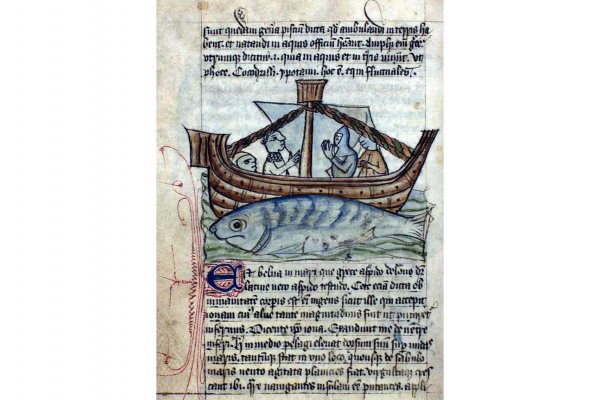 sunt quedam gña pisciũ dicta qđ ambulandi in terris ha
bent. et natandi in aquis officiũ hẽant. Amphi em̃
utrumque dicitur .i. quia in aquis et in t̃ris uiuũt. vt
phoce. Cocodrilli. ypotami. hoc ẽ equi fluctuales.
Est belua in mari que grece aspido delone dr̃
latine uero aspido testudo. Cete etiã dicta ob
inmanitatẽ corꝑis est em̃ ingens sicut ille qui excepit
ionam cui᷒ aluus tante magnitudinis fuit ut putaret᷑
infernus. Dicente ip̃o iona. Exaudiuit me de uentre
inferi. in medio pelagi eleuat dorsum suũ sup̃ undas
maris. tantũque stat in uno loco. quousque de sabulo
maris uento agitata planicies fiat. virgultaque cres
cant ibi. nauigantes insulam eẽ putantes. appli